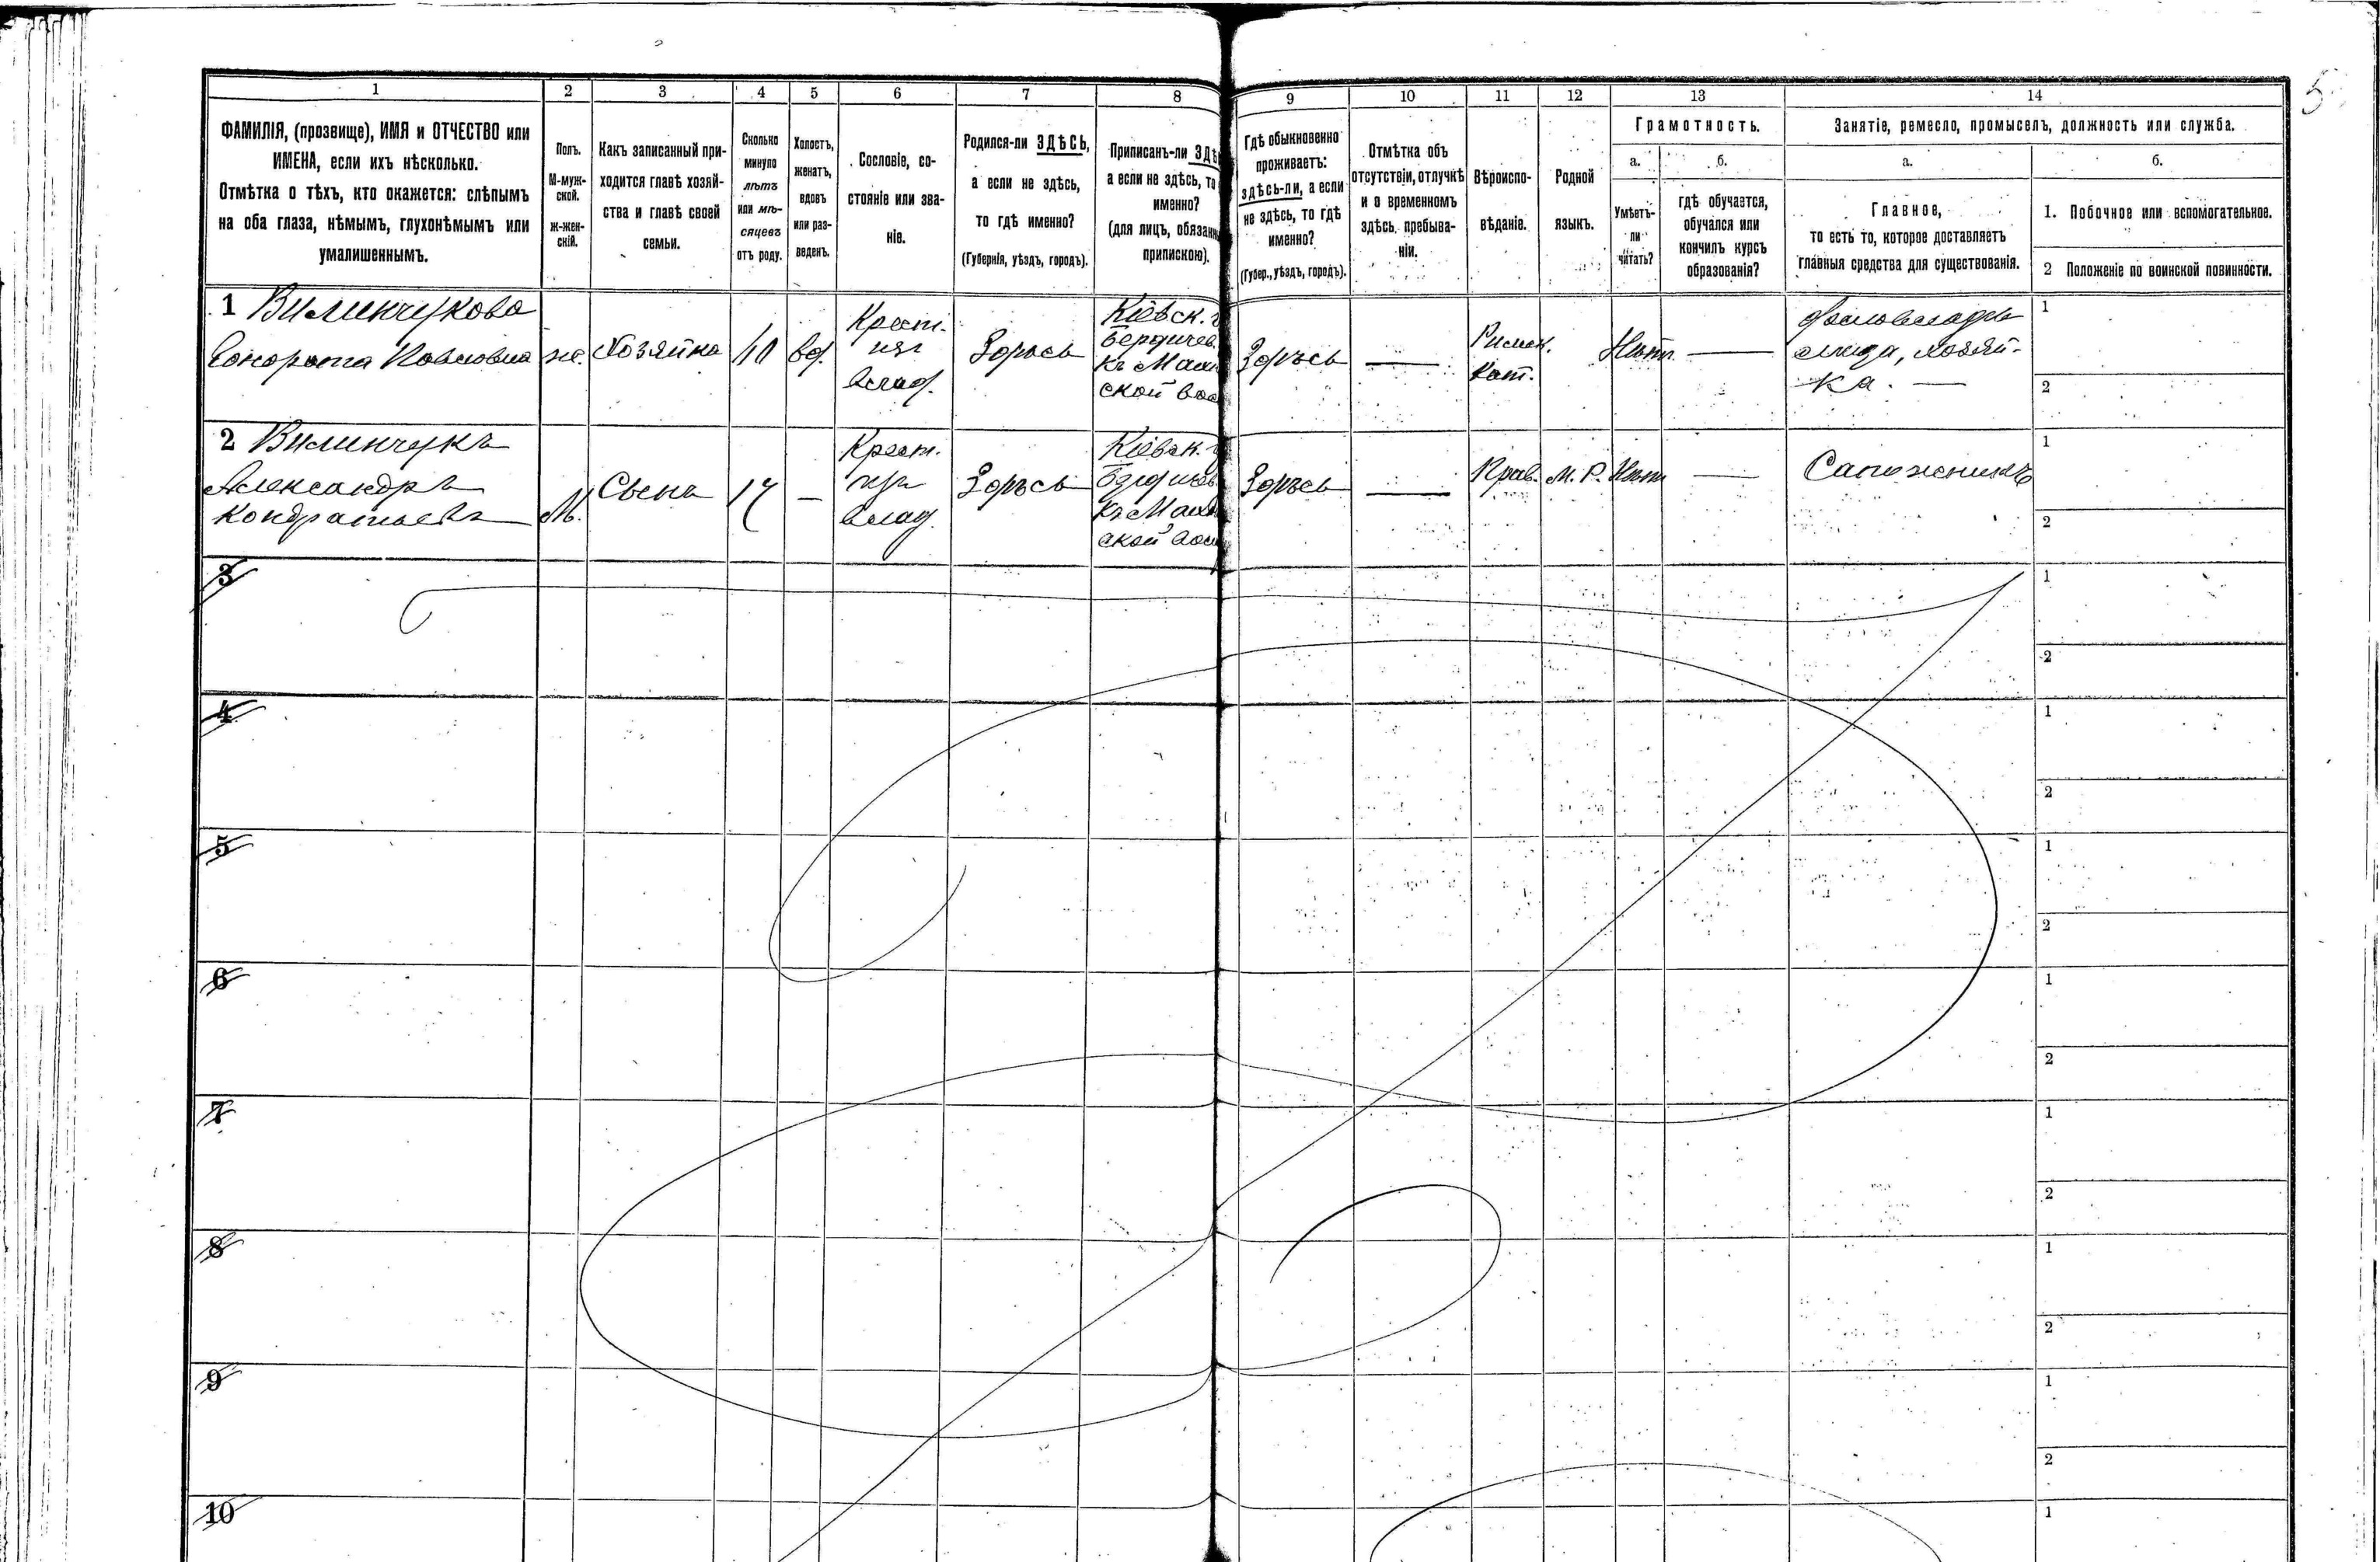 5
1 2 3 4 5 6 7 8 9 10 11 12 13 14
ФАМИЛІЯ, (прозвище), ИМЯ и ОТЧЕСТВО или
ИМЕНА, если ихъ нѣсколько.
Отмѣтка о тѣхъ, кто окажется: слѣпымъ
на оба глаза, нѣмымъ, глухонѣмымъ или
умалишеннымъ.
Полъ.
М-муж-
ской.
Ж-жен-
скій.
Какъ записанный при-
ходится главѣ хозяй-
ства и главѣ своей
семьи.
Сколько
минуло
лѣтъ
или мѣ-
сяцевъ
отъ роду.
Холостъ,
женатъ,
вдовъ
или раз-
веденъ.
Сословіе, со-
стояніе или зва-
ніе.
Родился-ли ЗДѢСЬ,
а если не здѣсь,
то гдѣ именно?
(Губернія, уѣздъ, городъ).
Приписанъ-ли ЗДѢ
а если не здѣсь, то
именно?
(для лицъ, обязан
припискою).
Гдѣ обыкновенно
проживаетъ:
здѣсь-ли, а если
не здѣсь, то гдѣ
именно?
(Губер., уѣздъ, городъ).
Отмѣтка объ
отсутствіи, отлучкѣ
и о временномъ
здѣсь пребыва-
ніи.
Вѣроиспо-
вѣданіе.
Родной
языкъ.
Грамотность.
а. б.
Умѣетъ-
ли
читать?
гдѣ обучается,
обучался или
кончилъ курсъ
образованія?
Занятіе, ремесло, промыселъ, должность или служба.
а. б.
Главное,
то есть то, которое доставляетъ
главныя средства для существованія.
1. Побочное или вспомогательное.
2 Положеніе по воинской повинности.
1 Вилинчукова
Гонората Павловна
ж.
Хозяйка
40
вд.
Крест.
изъ
влад.
Здѣсь
Кіевск. г
Бердичев.
Къ Мах
ской вол
Здѣсь
—
Римск.
Кат.
Нѣтъ
—
хозяй-
ка. —
1
2
2 Вилинчукъ
Александръ
Кондратьевъ
М.
Сынъ
17
—
Крест.
изъ
влад.
Здѣсь
Кіевск. г
Бердичев
Къ Мах
ской вол
Здѣсь
—
Прав.
М. Р.
Нѣтъ
—
Сапожникъ
1
2
3
1
2
4
1
2
5
1
2
6
1
2
7
1
2
8
1
2
9
1
2
10
1